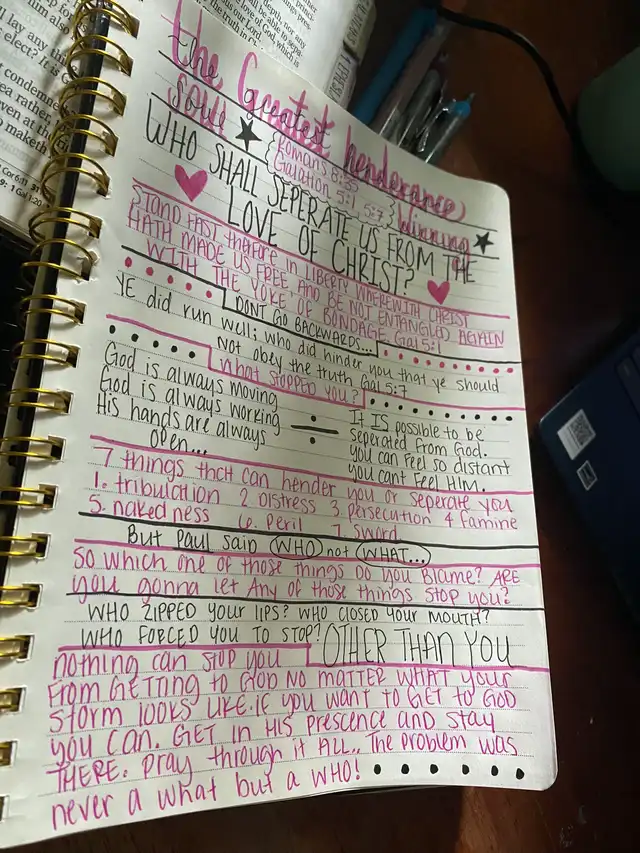 the Greatest henderance
soul Winning
Romans 8:35
Galation 5:1, 5:7
WHO SHALL SEPERATE US FROM THE
LOVE OF CHRIST?
STAND FAST therfore in LIBERTY WHEREWITH CHRIST
HATH MADE US FREE AND BE NOT ENTANGLED AGAIN
WITH THE YOKE OF BONDAGE Gal 5:1
DONT GO BACKWARDS...
YE did run well; who did hinder you that ye should
Not obey the truth Gal 5:7
What STOPPED YOU?
God is always moving
God is always working
His hands are always
open...
It IS possible to be
seperated from God.
you can feel so distant
you cant Feel HIM.
7 things that can hender you or seperate you
1. tribulation 2 Distress 3. Persecution 4 Famine
5. nakedness 6. Peril 7. Sword
But Paul said WHO not WHAT...
So which one of those things Do you Blame? ARE
you gonna let Any of those things stop you?
WHO ZIPPED your LIPS? WHO CLOSED YOUR MOUTH?
WHO FORCED YOU TO STOP? OTHER THAN YOU
nothing can stop you
From GETTING to GOD NO MATTER WHAT your
STORM LOOKS LIKE. IF YOU WANT TO GET to GOD
you CAN. GET IN HIS Prescence AND STAY
THERE. Pray through it ALL.. The problem was
never a what but a WHO!